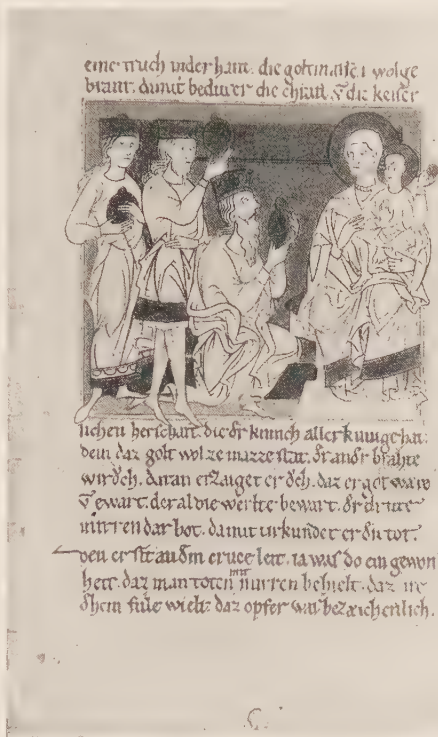 eine truch inder hant. die goltmasse. i wolge
brant. damit bediuter die chraft. v̄ die keiser
lichen herschaft. die dr kunich aller kunige hat.
dem daz golt wol ze mazze stat. dr andr brahte
wirǒch. daran erzaiget er ǒch. daz er got ware
v̄ ewart. der al die werlte bewart. dr dritte
mirren dar bot. damit urkundet er dn tot.
den er sit an dm cruce leit. ia was do ein gewon
heit. daz man toten mit mirren behielt. daz ire
dhein fule wielt. daz opfer was bezaichenlich.